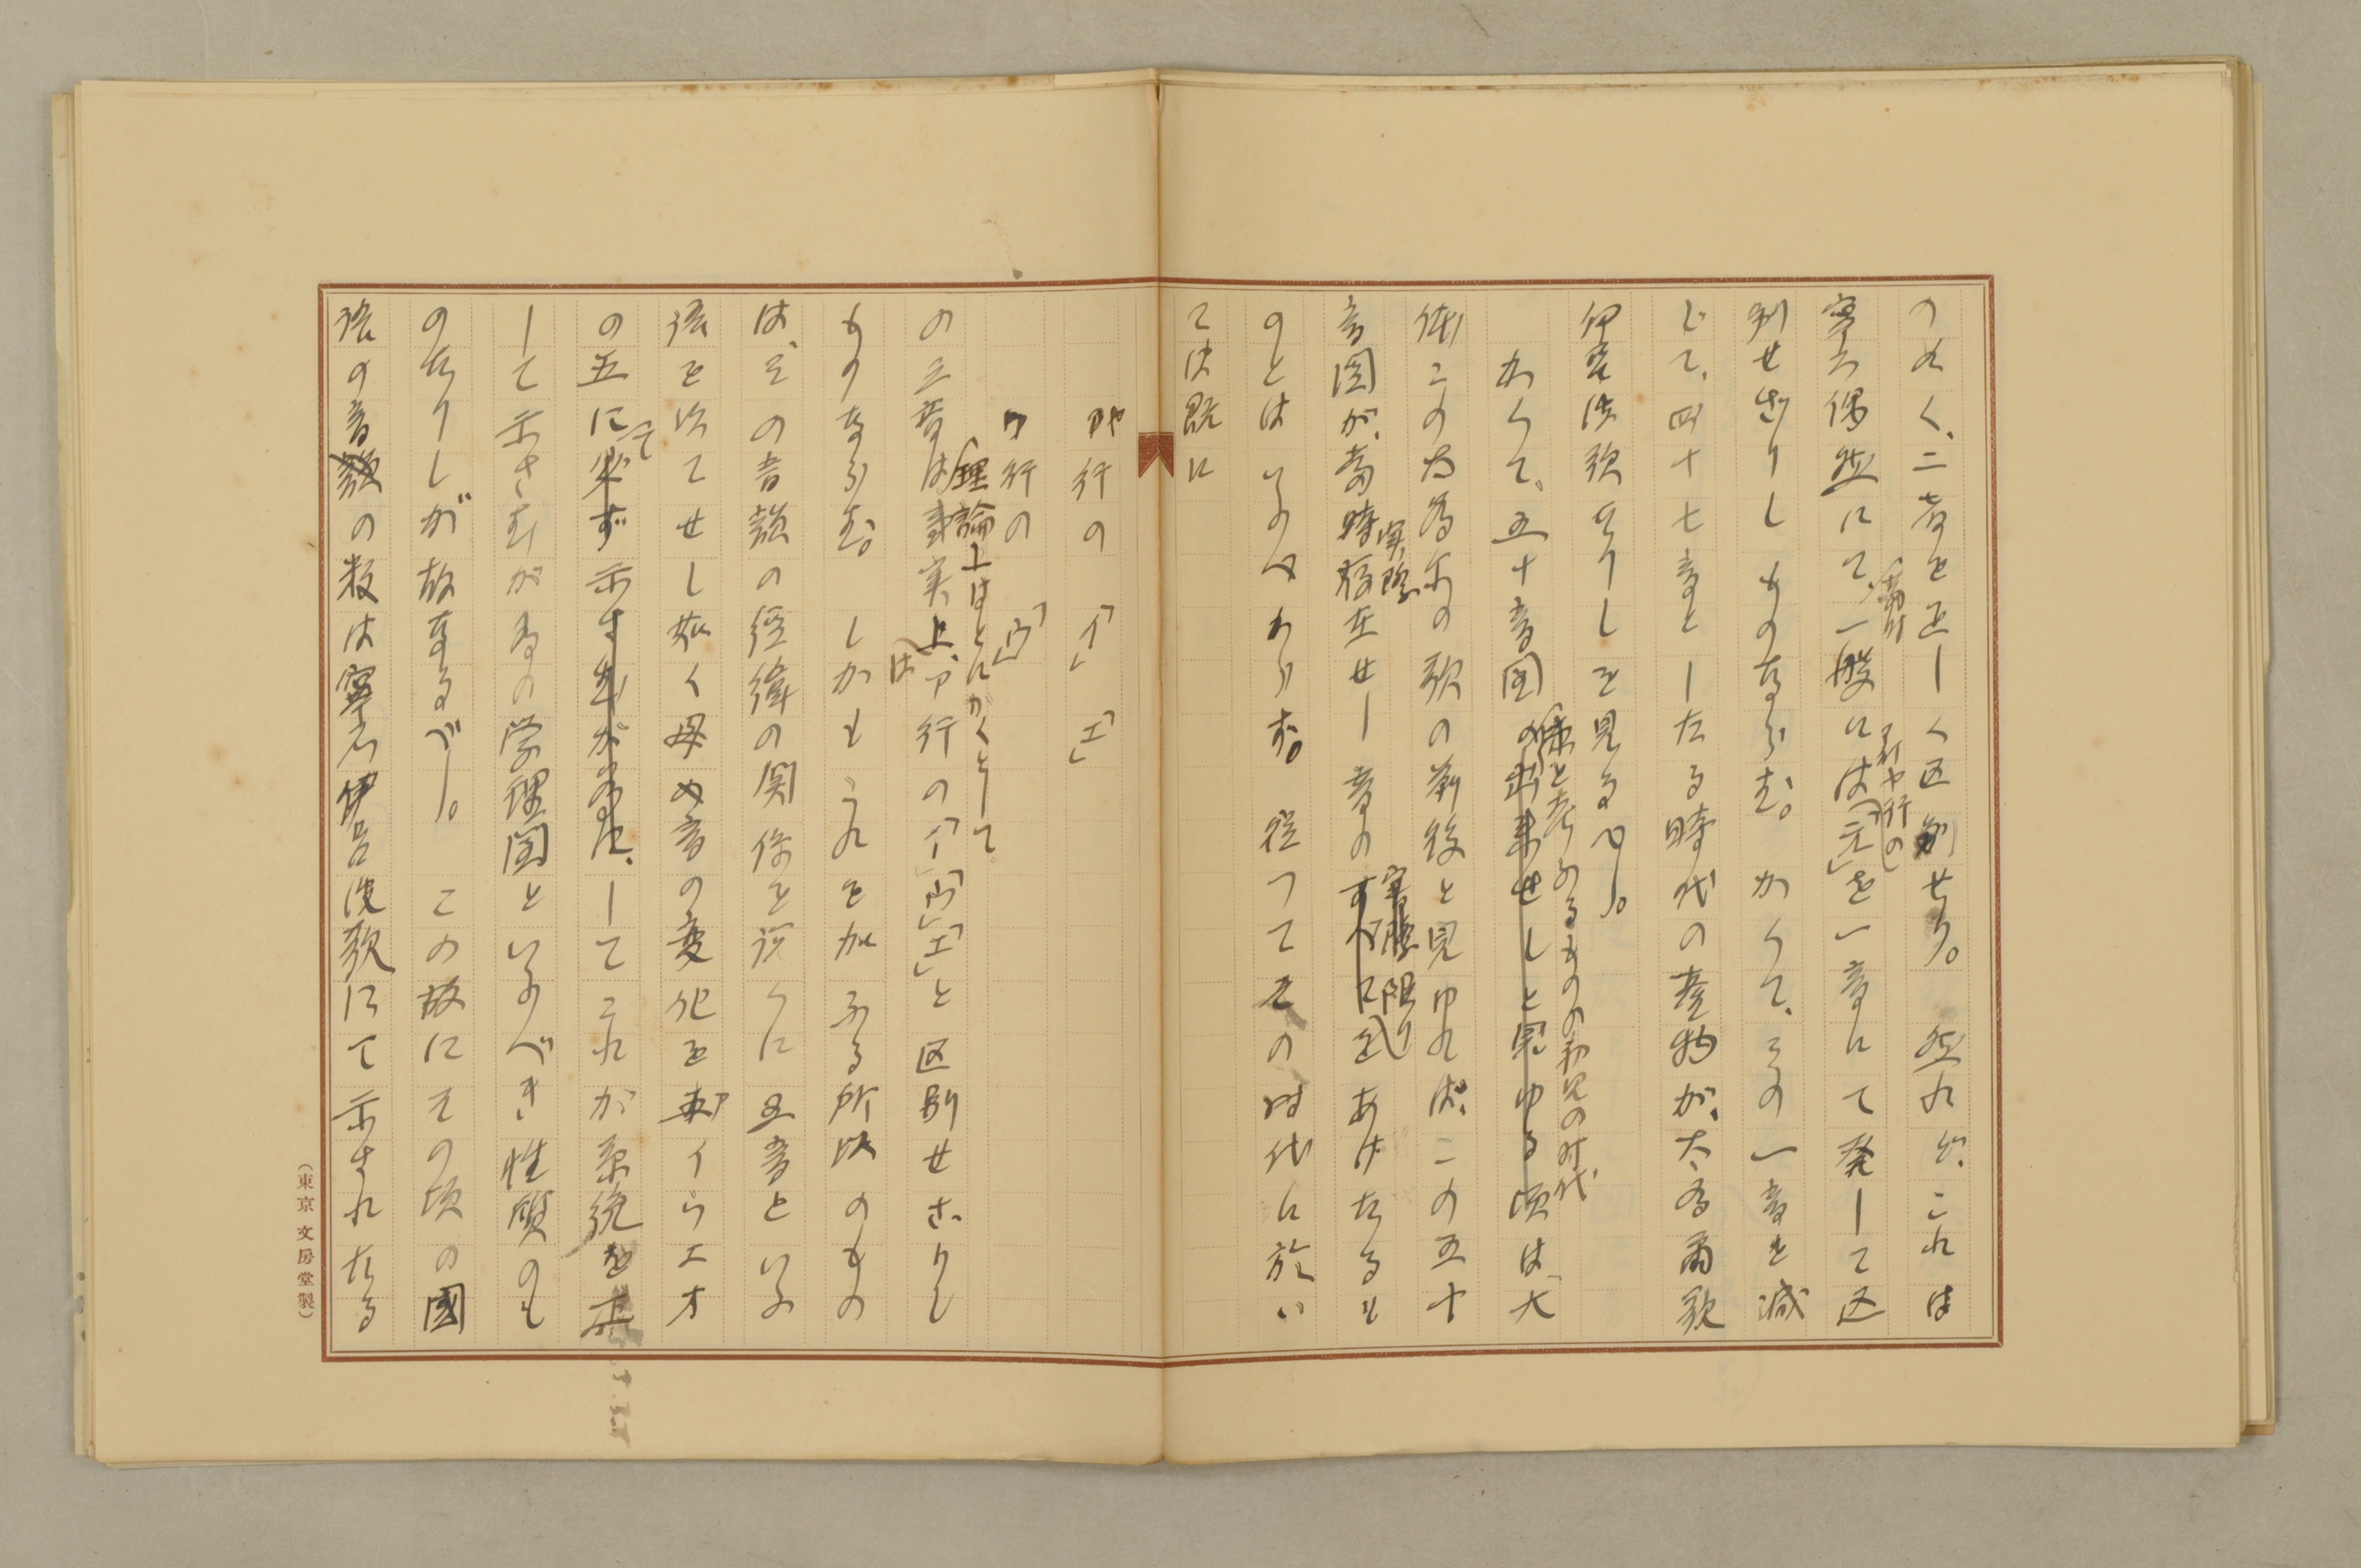 のめく、二音を正しく区別せり。然れど、これは
寧ろ偶然にて、当時一般にはア行ヤ行の「エ」を一音にて発して区
別せざりしものならむ。かくて、その一音を減
じて、四十七音としたる時代の産物が、大為爾歌
伊呂波歌なりしを見るべし。
かくて、五十音図の出来せしと見ゆる頃は、大
様と考へらるるものの初見の時代
体この為尓の歌の前後と見ゆれば、この五十
音図が、当時存在せし音のすべてをあげたるも
実際
実際限り
のとはいふべからず。従つてその時代に於い
ては既に
ヤ行の「イ」「エ」
ワ行の「ウ」
理論上はとにかくとして
の三音は事実上、ア行の「イ」「ウ」「エ」と区別せざりし
は
ものならむ。しかもこれを加ふる所以のもの
は、その音韻の経緯の関係を説くに五音といふ
語を以てせし如く母の音の変化を アイウエオ
の五にて必ず示すが為に、してこれが系統を正
して示さむが為の学理図といふべき性質のも
のたりしが故なるべし。この故にその頃の國
語の音韻の数は寧ろ伊呂波歌にて示されたる
(東京 文房堂製)